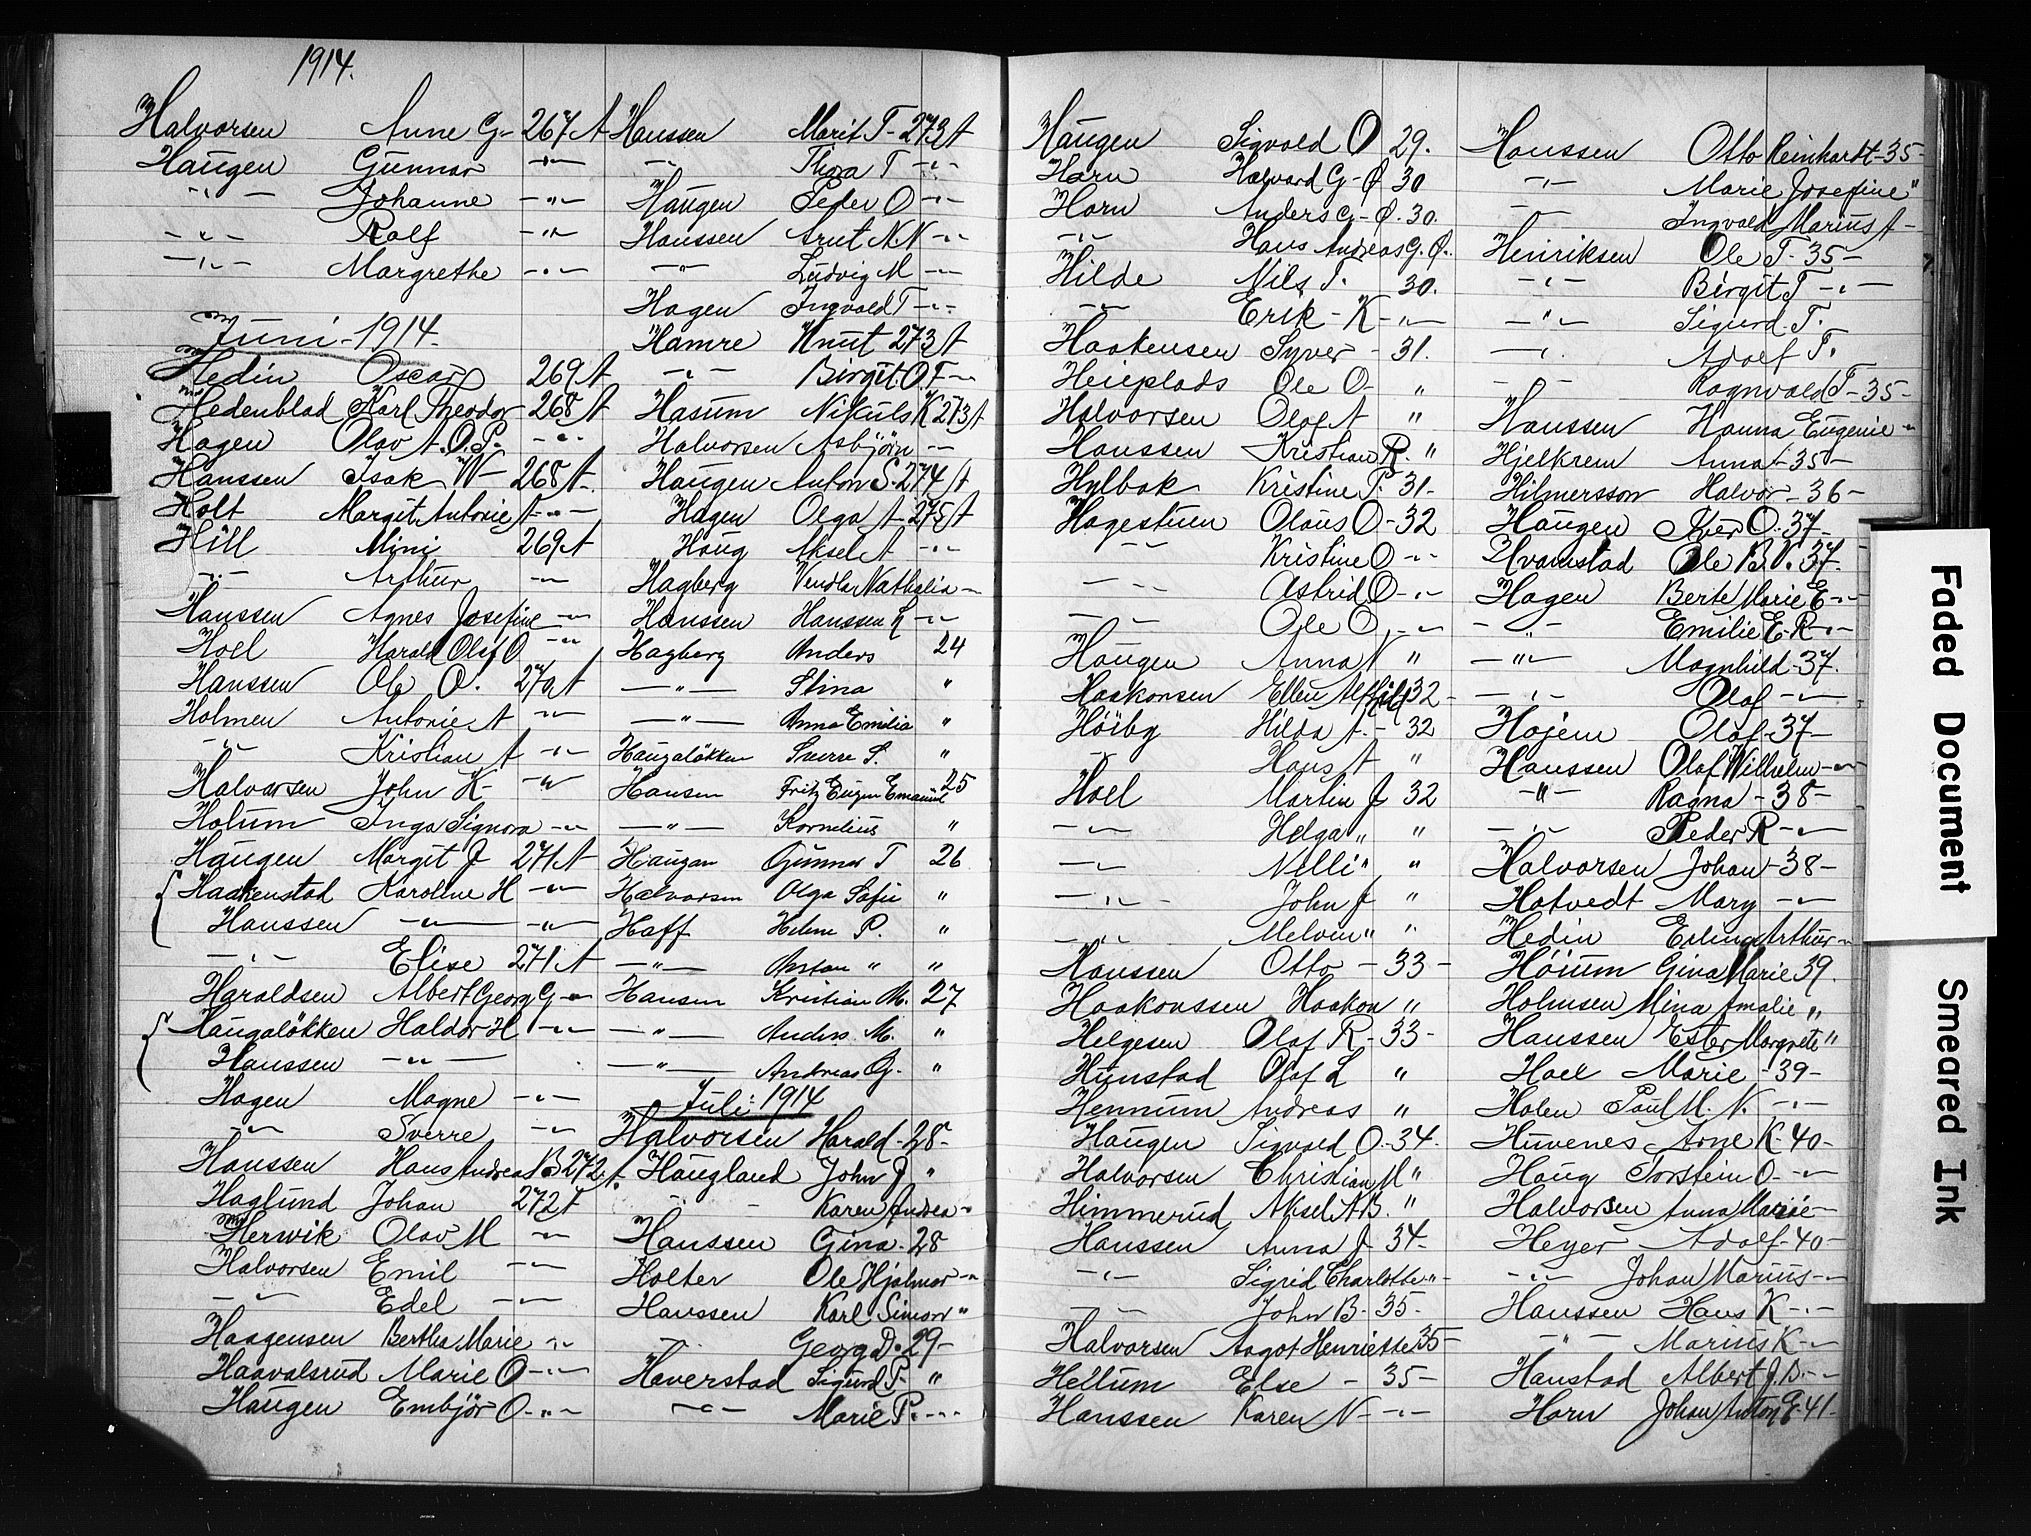 1914.
Halvorsen Anne G- 267 A
Haugen Gunnar -"-
-"- Johanne -"-
-"- Ralf -"-
-"- Margrethe -"-
Juni - 1914.
Hedin Oscar 269 A
Hedenblad Karl Theodor 268 A
Hagen Olav A.O.P. -"-
Hanssen Isak W- 268 A.
Holt Margit Antonie A -"-
Hill Mini 269 A
-"- Arthur -"-
Hanssen Agnes Josefine -"-
Hoel Harald Olaf O -"-
Hanssen Ole O. 270 A
Holmen Antonie A -"-
-"- Kristian A -"-
Halvorsen John K- -"-
Holum Inga Signora -"-
Haugen Margit J 271 A
Haakenstad Karoline H -"-
Hanssen -"- -"-
-"- Elise 271 A
Haraldsen Albert Georg G -"-
Haugaløkken Haldor H -"-
Hanssen -"-
Hagen Magne -"-
-"- Sverre -"-
Hanssen Hans Andreas B 272 A.
Haglund Johan 272 A
Herwik Olav M -"-
Halvorsen Emil -"-
-"- Edel -"-
Haagensen Bertha Marie -"-
Haavalsrud Marie O -"-
Haugen Embjör O -"-
Hanssen Marit T- 273 A
-"- Thora T -"-
Haugen Peder O -"-
Hanssen Arnt N.N -"-
-"- Ludvig M -"-
Hagen Ingvald T -"-
Hamre Knut 273 A
-"- Birgit O.T -"-
Hasum Nikuls K 273 A
Halvorsen Asbjörn -"-
Haugen Anton S. 274 A
Hagen Olga A 275 A
Haug Aksel A -"-
Hagberg Vendla Nathalia -"-
Hanssen Hanssen L -"-
Hagberg Anders 24
-"- Stina "
-"- Anna Emilia "
Haugaløkken Sverre S. "
Hansen Fritz Eugen Emanuel 25
-"- Kornelius "
Haugan Gunnar T 26
Halvorsen Olga Sofie "
Haff Helene P. "
-"- Anton " "
Hansen Kristian M. 27
-"- Anders M. "
-"- Andreas G. "
Juli: 1914
Halvorsen Harald - 28-
Haugland John J "
-"- Karen Andrea -"
Hanssen Gina - 28
Holter Ole Hjalmar -"
Hanssen Karl Simon "
-"- Georg D. 29-
Haverstad Sigurd P- "
-"- Marie P. -"-
Haugen Sigvald O 29.
Horn Halvard G- Ø 30
Horn Anders G- Ø. 30.
-"- Hans Andreas G. Ø.
Hilde Nils T. 30.
-"- Erik - K -"-
Haakensen Syver - 31.
Heieplads Ole O- "
Halvorsen Olaf A "
Hanssen Kristian R. "
Hylbak Kristine P. 31-
Hagestuen Olaus O - 32
-"- Kristine O -"-
-"- Astrid O -"-
-"- Ole O, -"-
Haugen Anna N "
Haakonsen Ellen Alfhild 32-
Höiby Hilda A. - 32
-"- Hans A "
Hoel Martin J 32
-"- Helga " "
-"- Nelli " "
-"- John J "
-"- Melvin " "
Hanssen Otto - 33-
Haakonssen Haakon "
Helgesen Olaf R - 33-
Hunstad Olaf L "
Hennum Andreas "
Haugen Sigvald O - 34.
Halvorsen Christian M "
Himmerud Aksel A.B. "
Hanssen Anna J 34-
-"- Sigrid Charlotte -"-
-"- John B- 35-
Halvorsen Aagot Henriette 35-
Hellum Else - 35-
Hanssen Karen N -"-
Hanssen Otto Reinhardt - 35-
-"- Marie Josefine "
-"- Ingvald Marius A -
Henriksen Ole T- 35-
-"- Birgit T -"-
-"- Sigurd T.
-"- Adolf T.
-"- Ragnvald T- 35-
Hanssen Hanna Eugenie -"
Hjelkrem Anna - 35-
Hilmersson Halvor - 36-
Haugen Iver O. 37-
Hvamstad Ole B.V. 37.
Hagen Berte Marie E -"-
-"- Emilie E. R -"-
-"- Magnhild - 37.
-"- Olaf -"-
Hojem Olaf - 37-
Hanssen Olaf Wilhelm -"-
-"- Ragna - 38-
-"- Peder R -"-
Halvorsen Johan - 38-
Hatvedt Mary -"-
Hedin Erling Arthur -"
Höium Gina Marie 39.
Holmsen Mina Amalie "
Hanssen Ester Margrete "
Hoel Marie - 39-
Holen Paul M. N. -"-
Huvenes Arne K. 40-
Haug Torstein O -"-
Halvorsen Anna Marie -
Heyer Adolf - 40-
-"- Johan Marius -"
Hanssen Hans K -"-
-"- Marius K -"-
Hanstad Albert J.B. -"-
Horn Johan Anton G - 41-
Faded Document
Smeared Ink